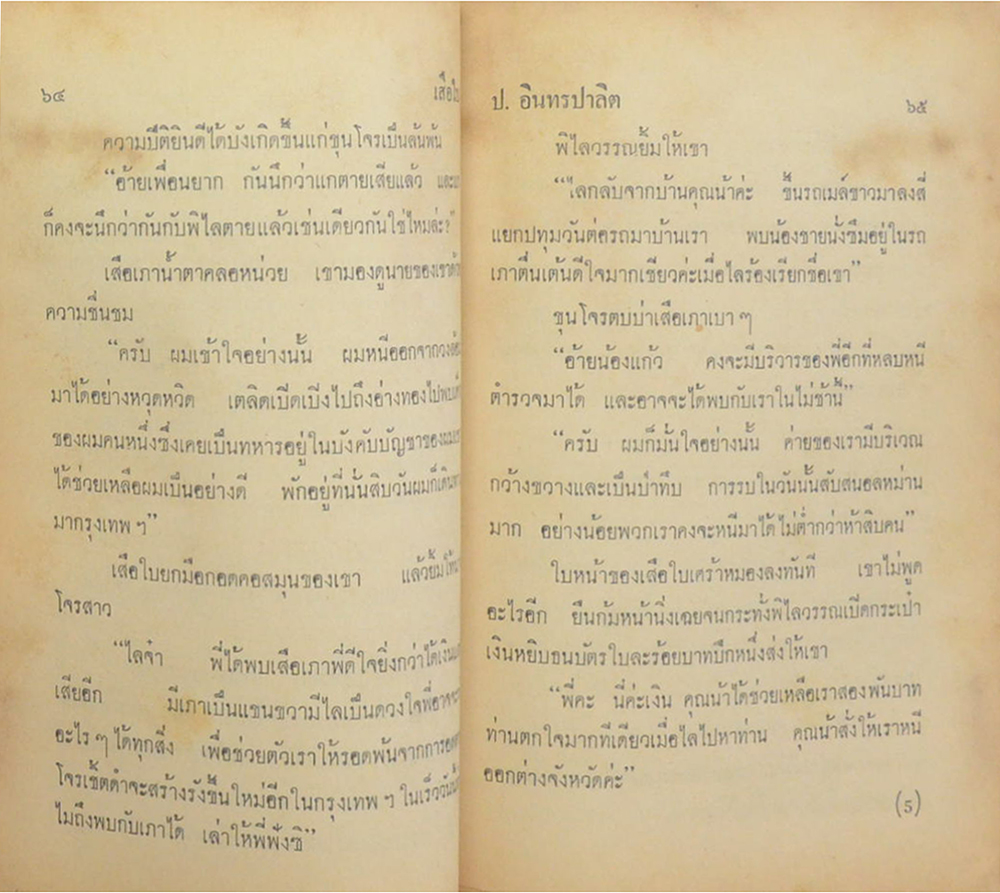 ๖๔
เสือใบ
ความปีติยินดีได้บังเกิดขึ้นแก่ขุนโจรเป็นล้นพ้น
“อ้ายเพื่อนยาก กันนึกว่าแกตายเสียแล้ว
ก็คงจะนึกว่ากันกับพิไลตายแล้วเช่นเดียวกันใช่ไหมล่ะ?”
เสือเภาน้ำตาคลอหน่วย เขามองดูนายของเราด้วย
ความชื่นชม
“ครับ ผมเข้าใจอย่างนั้น ผมหนีออกจากวงล้อม
มาได้อย่างหวุดหวิด เตลิดเปิดเปิงไปถึงอ่างทองไปพบ
ของผมคนหนึ่งซึ่งเคยเป็นทหารอยู่ในบังคับบัญชาของผม
ได้ช่วยเหลือผมเป็นอย่างดี พักอยู่ที่นั่นสิบวันผมก็เดินทาง
มากรุงเทพ ฯ”
เสือใบยกมือกอดคอสมุนของเขา แล้วยิ้มให้
โจรสาว
“ไลจ๋า พี่ได้พบเสือเภาพี่ดีใจยิ่งกว่าได้เงิน
เสียอีก มีเภาเป็นแขนขวามีไลเป็นดวงใจพี่อาจจะ
อะไร ๆ ได้ทุกสิ่ง เพื่อช่วยตัวเราให้รอดพ้นจากการ
โจรเชิ้ตดำจะสร้างรังขึ้นใหม่อีกในกรุงเทพ ฯ ในเร็ววันนี้
ไมถึงพบกับเภาได้ เล่าให้พี่ฟังซิ”
ป. อินทรปาลิต
๖๕
พิไลวรรณยิ้มให้เขา
“ไลกลับจากบ้านคุณน้าค่ะ ขึ้นรถเมล์ขาวมาลงสี่
แยกปทุมวันต่อรถมาบ้านเรา พบน้องชายนั่งซึมอยู่ในรถ
เภาตื่นเต้นดีใจมากเชียวค่ะเมื่อไลร้องเรียกชื่อเขา”
ขุนโจรตบบ่าเสือเภาเบา ๆ
“อ้ายน้องแก้ว คงจะมีบริวารของพี่อีกที่หลบหนี
ตำรวจมาได้ และอาจจะได้พบกับเราในไม่ช้านี้”
“ครับ ผมก็มั่นใจอย่างนั้น ค่ายของเรามีบริเวณ
กว้างขวางและเป็นป่าทึบ การรบในวันนั้นสับสนอลหม่าน
มาก อย่างน้อยพวกเราคงจะหนีมาได้ไม่ต่ำกว่าห้าสิบคน”
ใบหน้าของเสือใบเศร้าหมองลงทันที เขาไม่พูด
อะไรอีก ยืนก้มหน้านิ่งเฉยจนกระทั่งพิไลวรรณเปิดกระเป๋า
เงินหยิบธนบัตรใบละร้อยบาทปึกหนึ่งส่งให้เขา
“พี่คะ นี่ค่ะเงิน คุณน้าได้ช่วยเหลือเราสองพันบาท
ท่านตกใจมากทีเดียวเมื่อไลไปหาท่าน คุณน้าสั่งให้เราหนี
ออกต่างจังหวัดค่ะ”
(5)